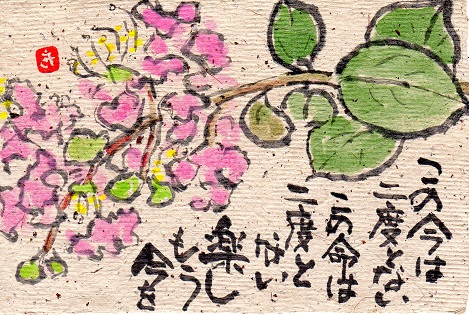 この今は
二度とない
この命は
二度と
ない
楽し
もう
今を